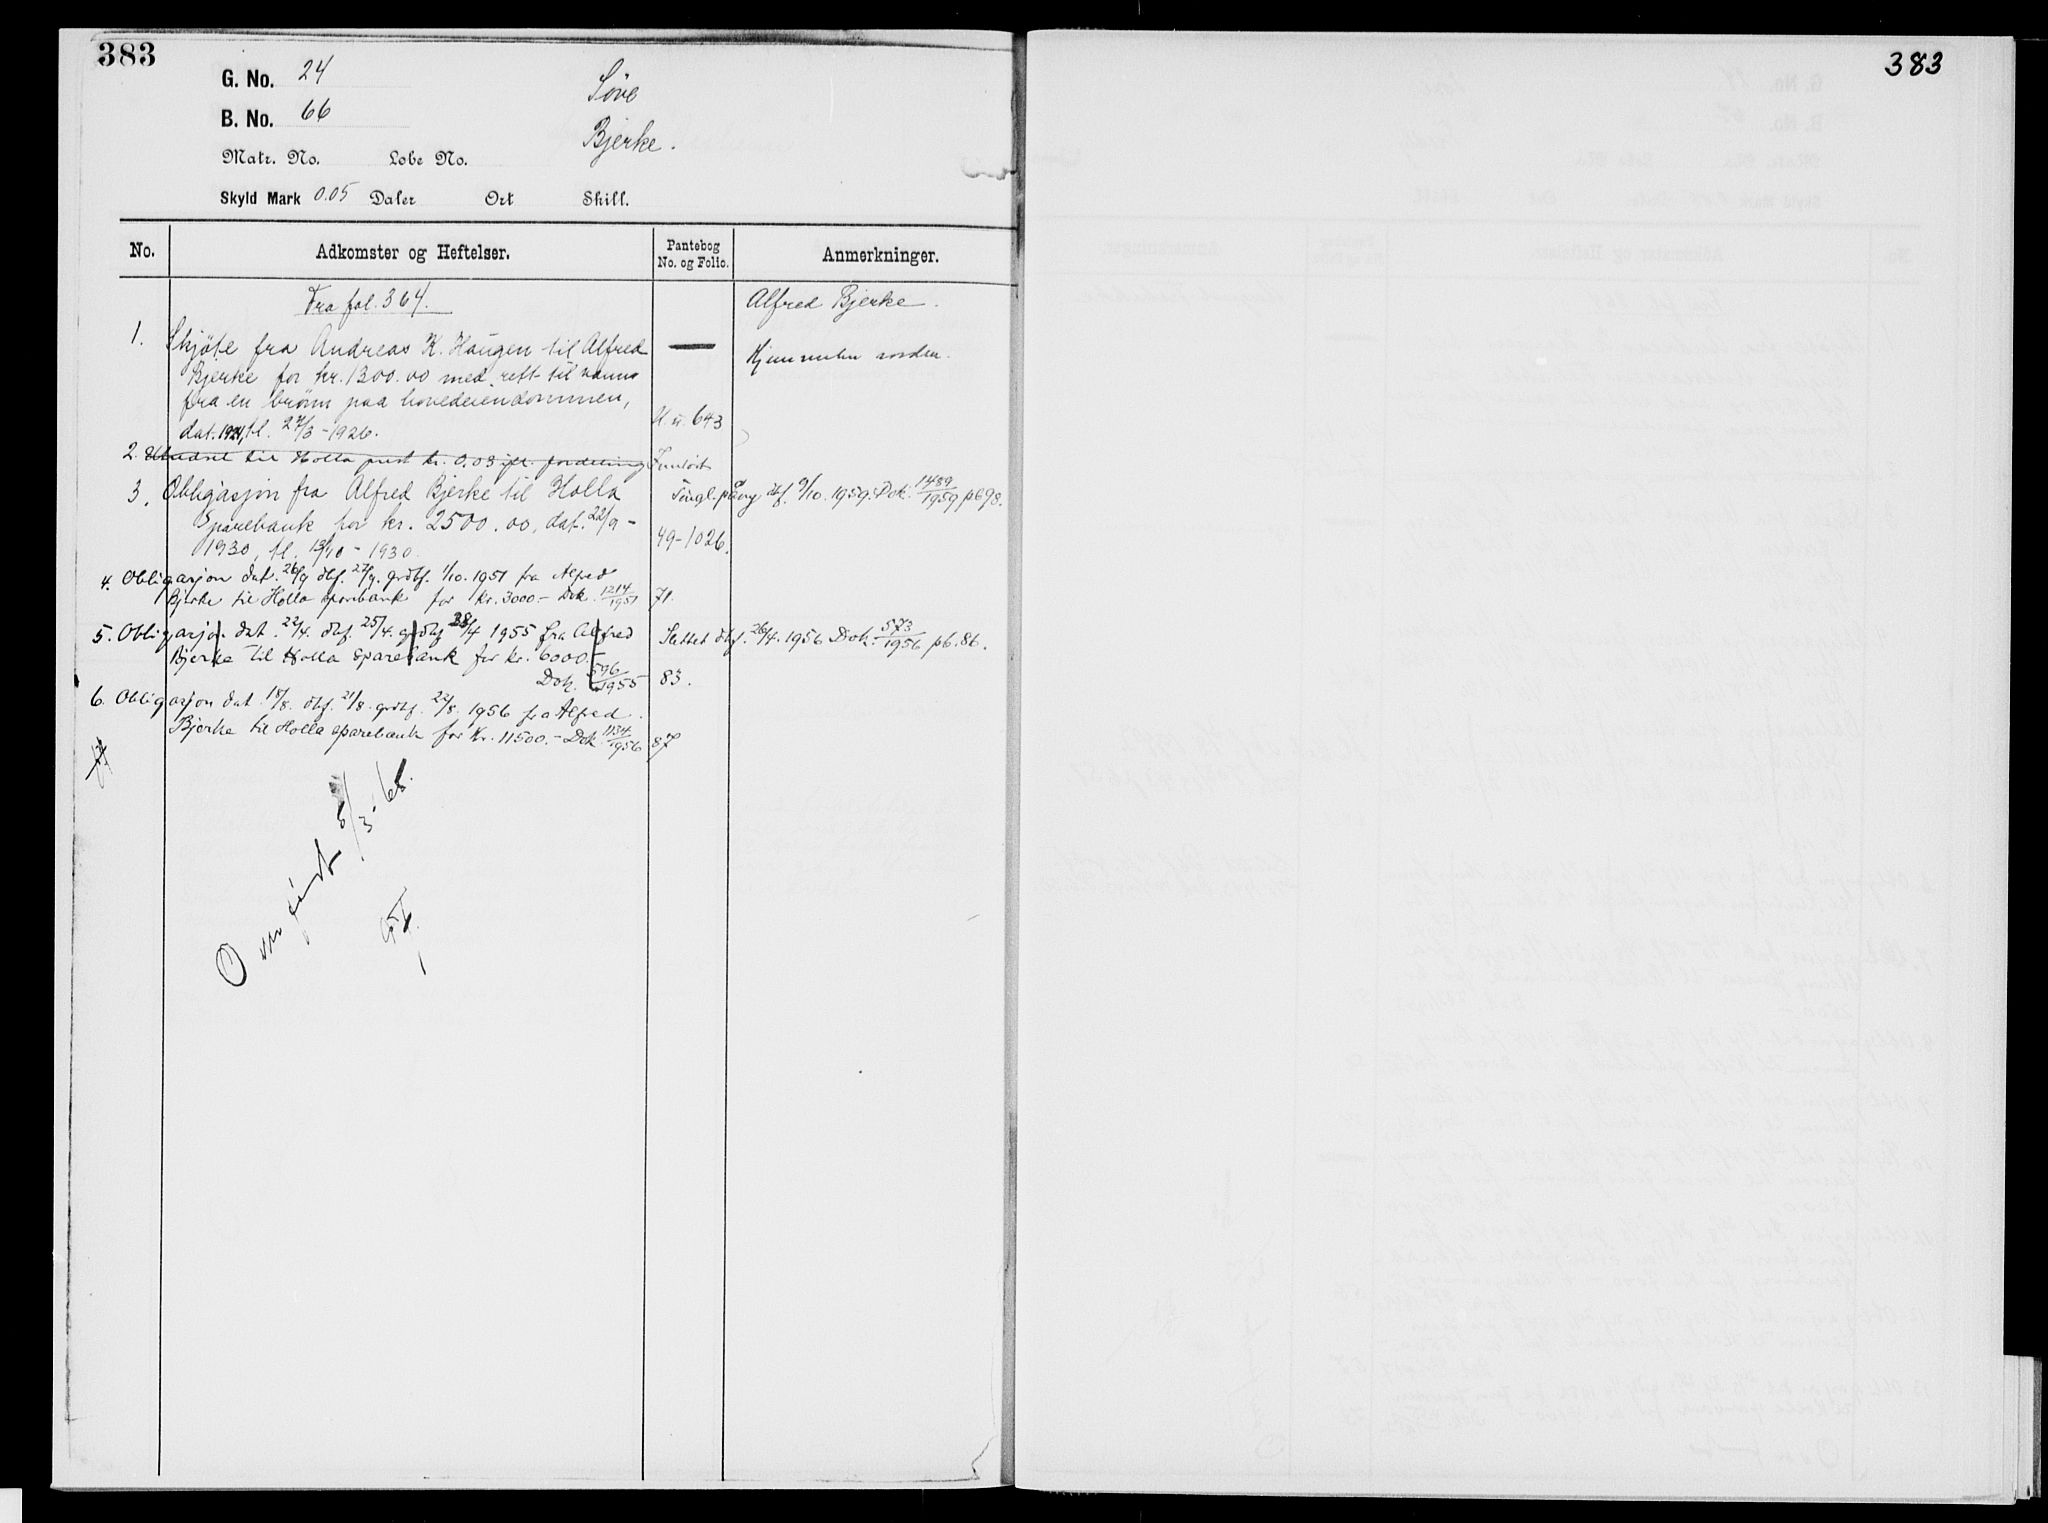 383
G. No. 24
Söve
B. No. 66
Bjerke.
Matr. No. Løbe No.
Skyld Mark 0.05 Daler Ort Skill.
No. Adkomster og Heftelser. Pantebog No. og Folio. Anmerkninger.
Fra fol. 364.
Alfred Bjerke.
1. Skjöte fra Andreas K. Haugen til Alfred
Bjerke for kr. 1300.00 med rett til vann
fra en brönn paa hovedeiendommen,
dat. 1924, tl. 27/3-1926. 643
2. til Holla prest kr. 0.03 fordeling
3. Obligasjon fra Alfred Bjerke til Holla
Sparebank for kr. 2500.00, dat. 22/9-
1930, tl. 13/10-1930. 49-1026.
Tingl. påny dbf. 9/10.1959. Dok. 1489/1959 pb 98.
4. Obligasjon dat. 26/9 dbf. 27/9. grdbf. 1/10.1951 fra Alfred
Bjerke til Holla sparebank for kr. 3000.- Dok. 1214/1951 71.
5. Obligasjon dat. 22/4. dbf. 25/4. grdbf 28/4 1955 fra Alfred
Bjerke til Holla sparebank for kr. 6000.-
Dok. 596/1955 83.
Slettet dbf. 26/4.1956 Dok. 573/1956 pb. 86.
6. Obligasjon dat. 18/8. dbf. 21/8. grdbf. 22/8. 1956 fra Alfred
Bjerke til Holla sparebank for kr. 11500.- Dok. 1134/1956 87
Overført 8/3-68.
383